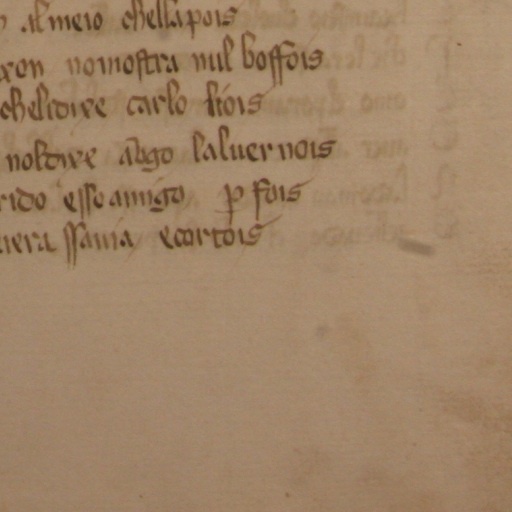 almeio chellapois
xen nomostra mil boffois
chelidire carlo liois
noldire albgo laluernois
rido esso amigo p fois
iera ssauia ecortois